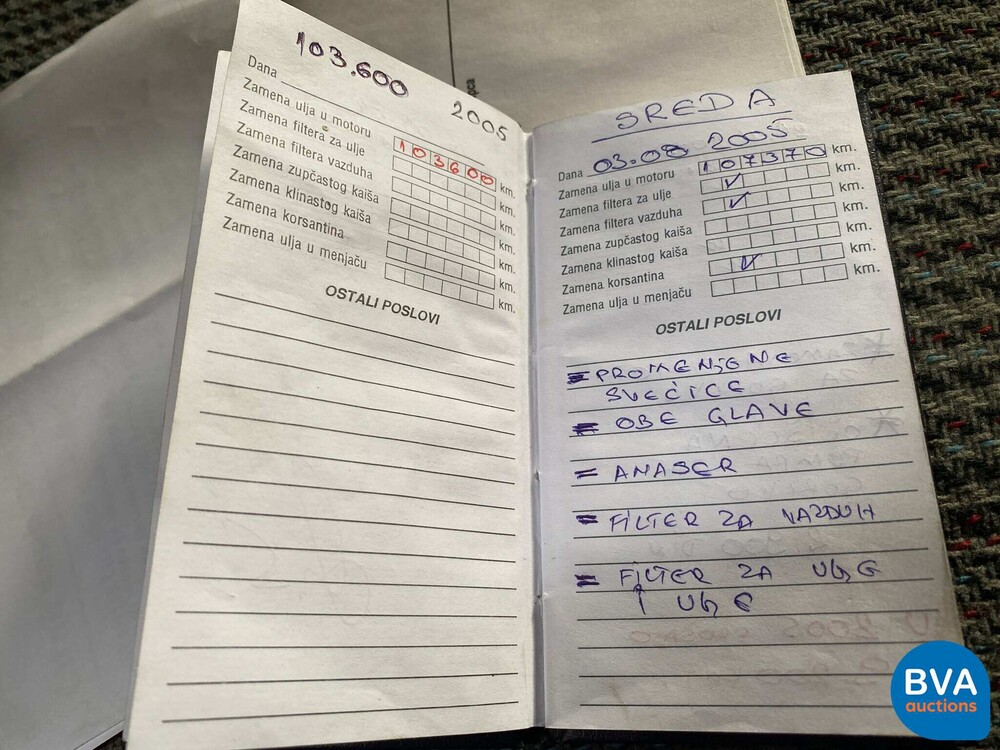 103.600
2005
Dana
Zamena ulja u motoru 103600 km.
Zamena filtera za ulje km.
Zamena filtera vazduha km.
Zamena zupčastog kaiša km.
Zamena klinastog kaiša km.
Zamena korsantina km.
Zamena ulja u menjaču km.
OSTALI POSLOVI
SREDA
Dana 03.08 2005
Zamena ulja u motoru 107370 km.
Zamena filtera za ulje ✓ km.
Zamena filtera vazduha ✓ km.
Zamena zupčastog kaiša km.
Zamena klinastog kaiša km.
Zamena korsantina ✓ km.
Zamena ulja u menjaču km.
OSTALI POSLOVI
= PROMENJENE
SVEĆICE
= OBE GLAVE
= ANASER
= FILTER ZA VAZDUH
= FILTER ZA ULJE
I ULJE
BVA
auctions